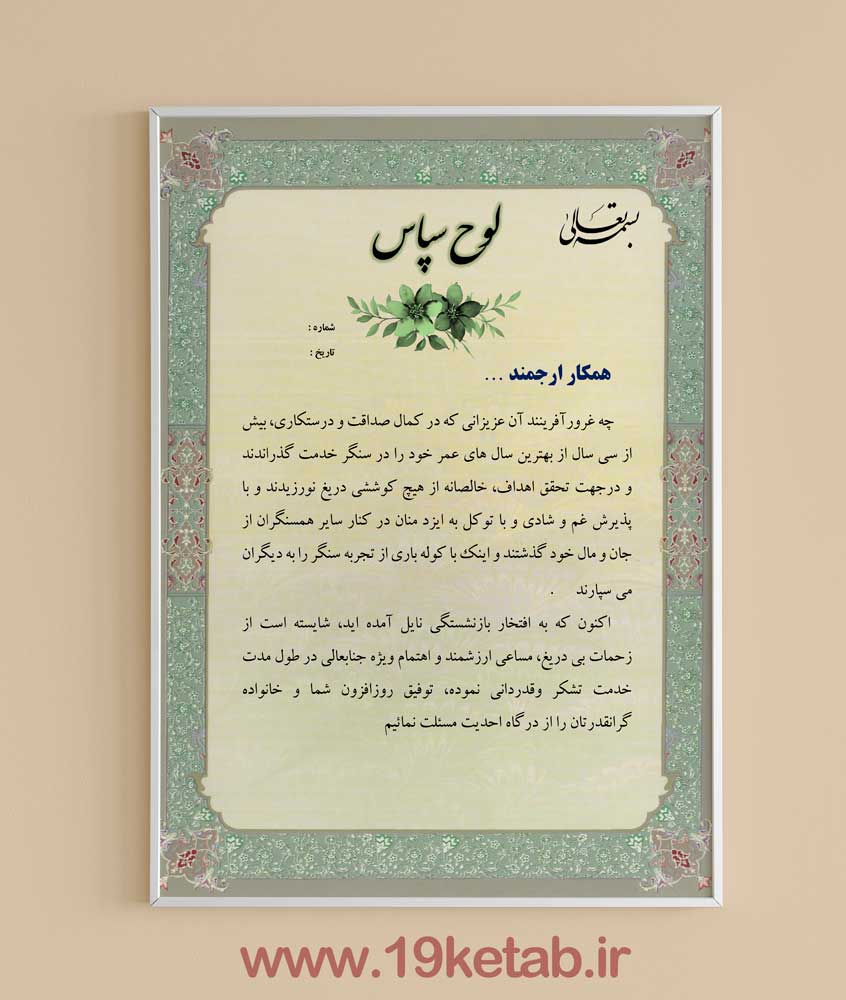 بسمه تعالی
لوح سپاس
شماره :
تاریخ :
همکار ارجمند ...
چه غرورآفرینند آن عزیزانی که در کمال صداقت و درستکاری، بیش
از سی سال از بهترین سال های عمر خود را در سنگر خدمت گذراندند
و درجهت تحقق اهداف، خالصانه از هیچ کوششی دریغ نورزیدند و با
پذیرش غم و شادی و با توکل به ایزد منان در کنار سایر همسنگران از
جان و مال خود گذشتند و اینک با کوله باری از تجربه سنگر را به دیگران
می سپارند .
اکنون که به افتخار بازنشستگی نایل آمده اید، شایسته است از
زحمات بی دریغ، مساعی ارزشمند و اهتمام ویژه جنابعالی در طول مدت
خدمت تشکر وقدردانی نموده، توفیق روزافزون شما و خانواده
گرانقدرتان را از درگاه احدیت مسئلت نمائیم
www.19ketab.ir